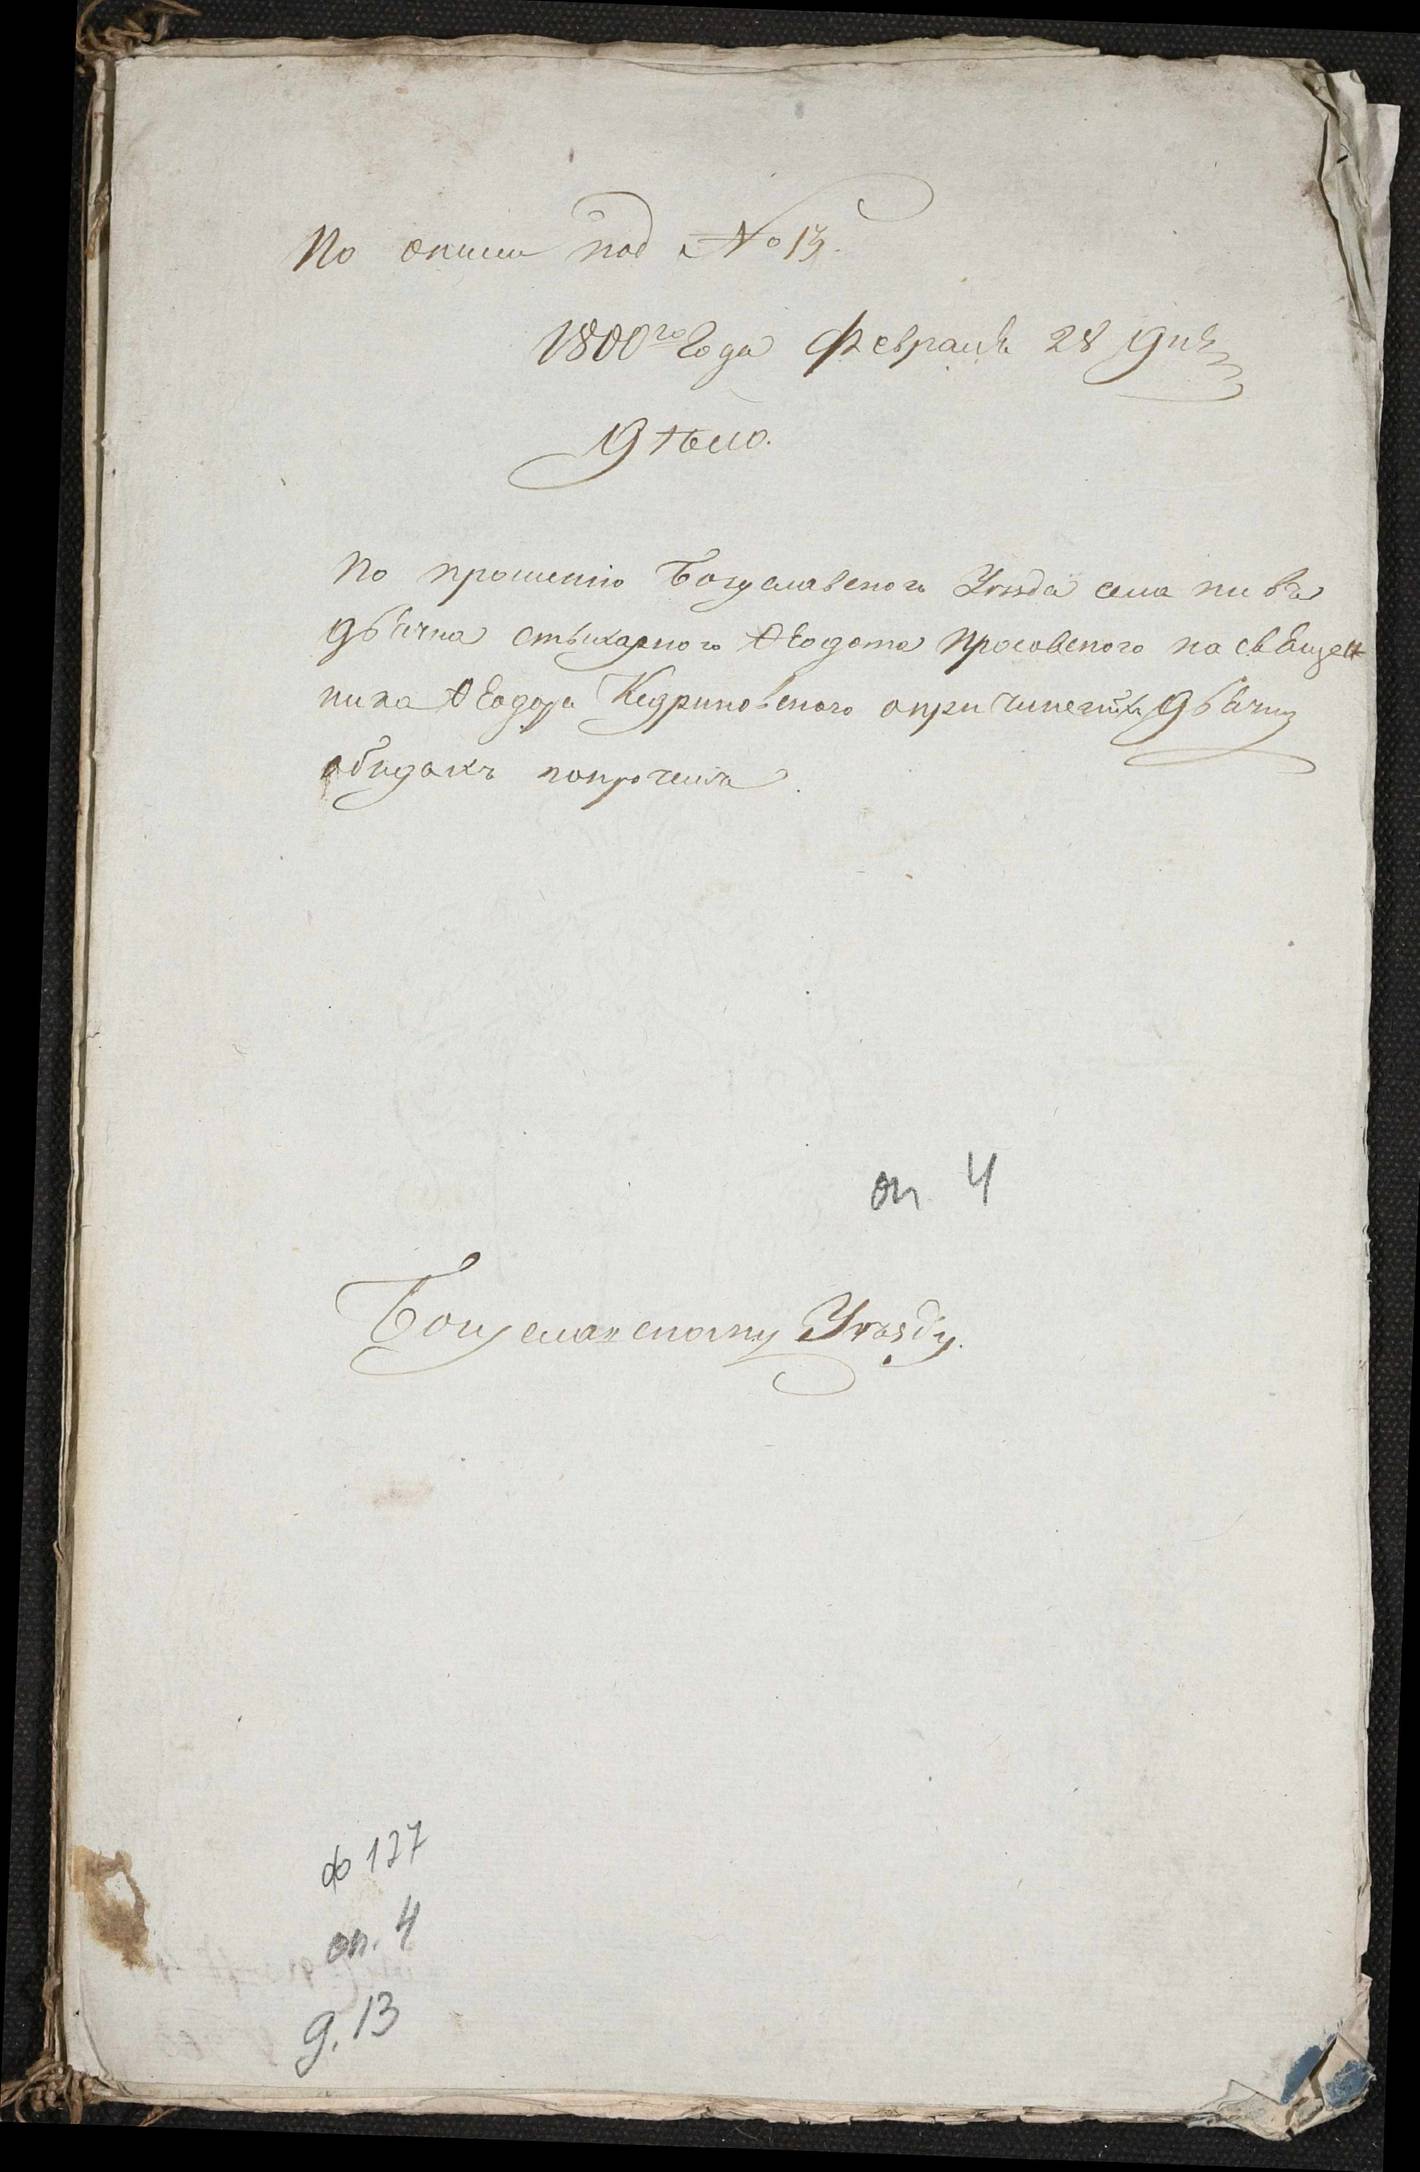 По описи под № 13.
1800го Года Февраля 28 дня
Дѣло.
По прошенію Богуславского Уѣзда села Пивъ
дьячка стыхарного Ѳеодота Просовского на священ
ника Ѳеодора Кедриновского о причиненныхъ дьячку
обидахъ и протчемъ
оп 4
Богуславскому Уѣзду.
ф 127
оп. 4
д. 13